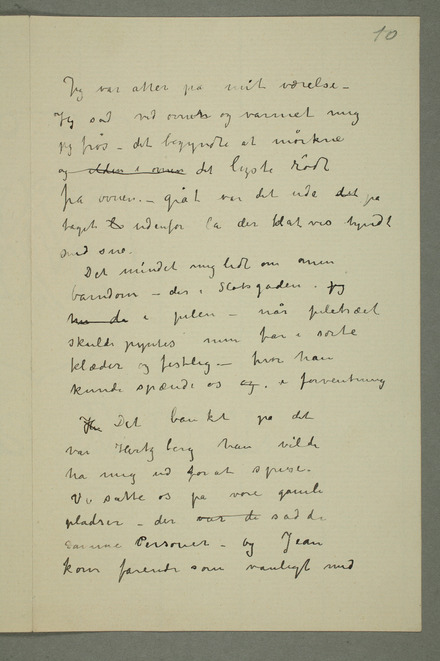 10
Jeg var atter på mit værelse –
Jeg sad ved ovnen og varmet mig
jeg frøs – det begyndte at mørkne
og ilden i ovnen det lyste rødt
fra ovnen. – gråt var det ude det på
taget udenfor lå der klatvis tyndt
med sne.
Det mindet mig lidt om min
barndom – der i Slotsgaden. jeg
i julen – når juletræet
skulde pyntes min far i sorte
klæder og festlig – hvor han
kunde spænde os og. i forventning
Det banket på det
var Hertzberg han vilde
ha mig ud for at spise.
Vi satte os på vore gamle
pladser – der var de sad de
samme Personer – og Jean
kom farende som vanligt med